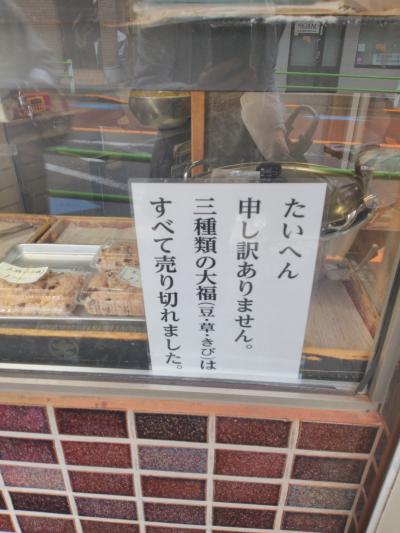 たいへん
申し訳ありません。
三種類の大福(豆・草・きび)は
すべて売り切れました。